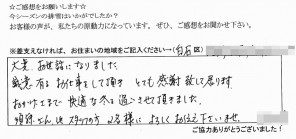 ☆ご感想をお願いします☆
今シーズンの排雪はいかがでしたか？
お客様の声が、私たちの原動力になっています。ぜひ、ご感想をお聞かせ下さい。
※差支えなければ、お住まいの地域をご記入ください→(白石区)
大変お世話になりました。
誠意有るお仕事をして頂きとても感謝致して居ります。
おかげさまで快適な冬を過ごさせて頂きました。
さん、他スタッフの方々様によろしくお伝え下さいませ。
ご協力ありがとうございました！